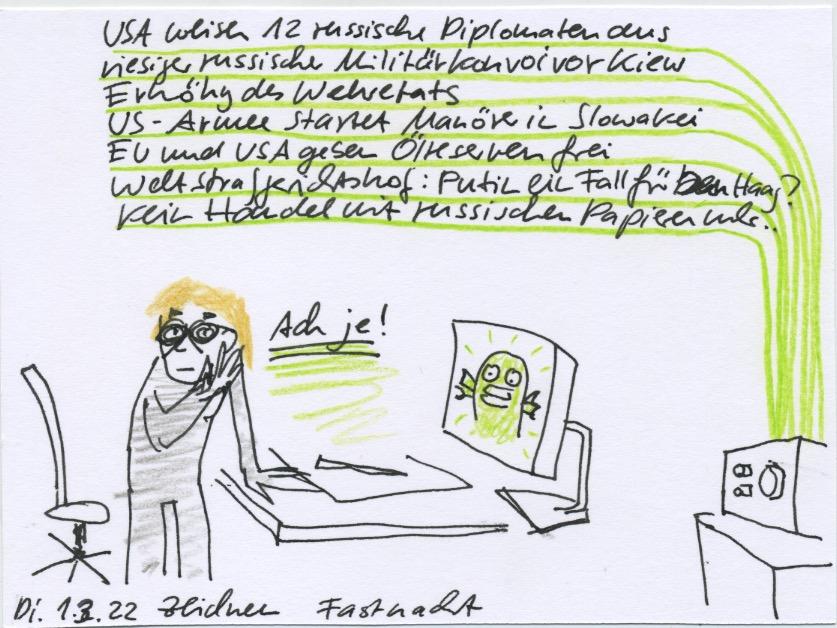 USA weisen 12 russische Diplomaten aus
riesiger russischer Militärkonvoi vor Kiew
Erhöhg des Wehretats
US-Armee startet Manöver in Slowakei
EU und USA geben Ölreserven frei
Weltstrafgerichtshof: Putin ein Fall für Den Haag?
kein Handel mit russischen Papieren mehr..
Ach je!
Di. 1.3.22 Zeichnen Fastnacht